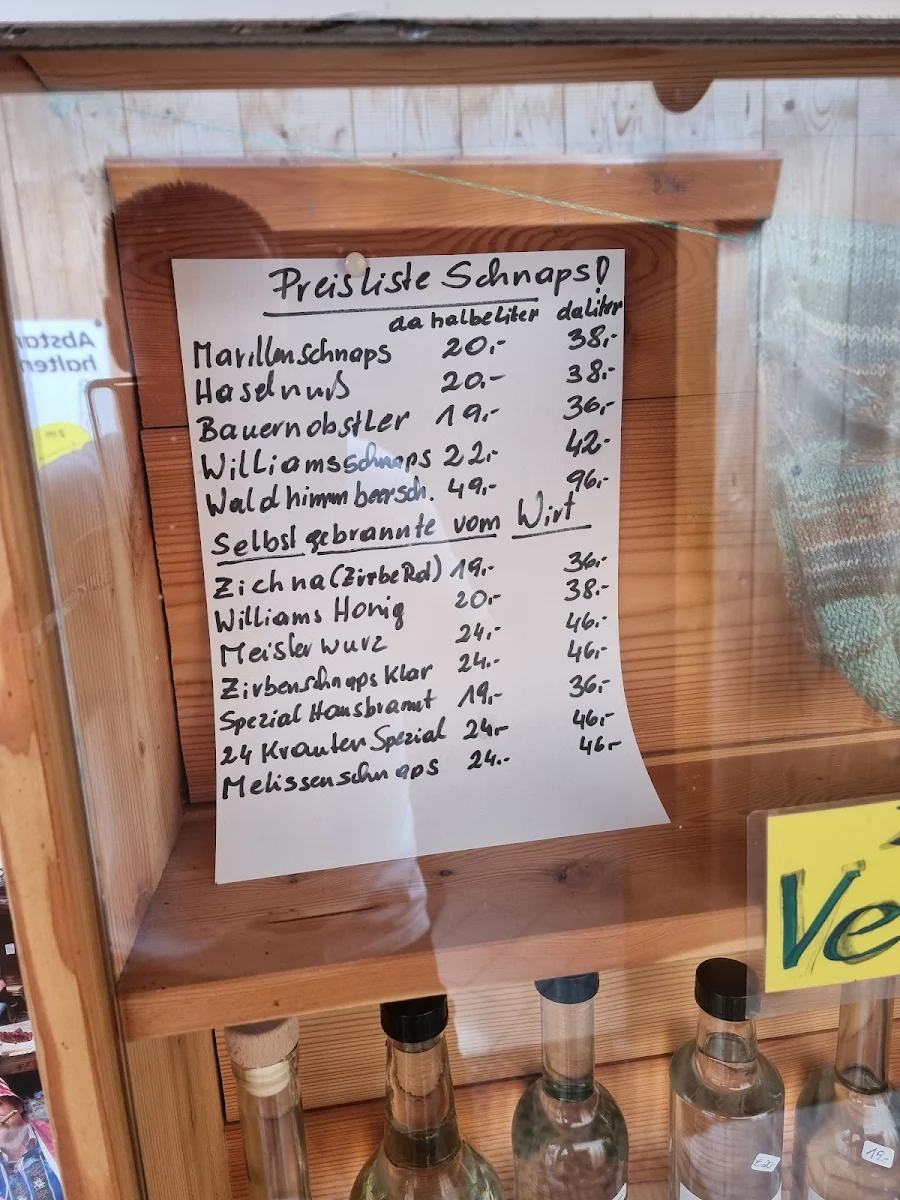 Preisliste Schnaps!
da halbeliter daliter
Marillenschnaps 20,- 38,-
Haselnuß 20,- 38,-
Bauernobstler 19,- 36,-
Williamsschnaps 22,- 42,-
Waldhimmbeersch. 49,- 96,-
Selbst gebrannte vom Wirt
Zichna (Zirbe Rot) 19,- 36,-
Williams Honig 20,- 38,-
Meisterwurz 24,- 46,-
Zirbenschnaps Klar 24,- 46,-
Spezial Hausbrannt 19,- 36,-
24 Kräuter Spezial 24,- 46,-
Melissenschnaps 24,- 46,-
Ve
19,-